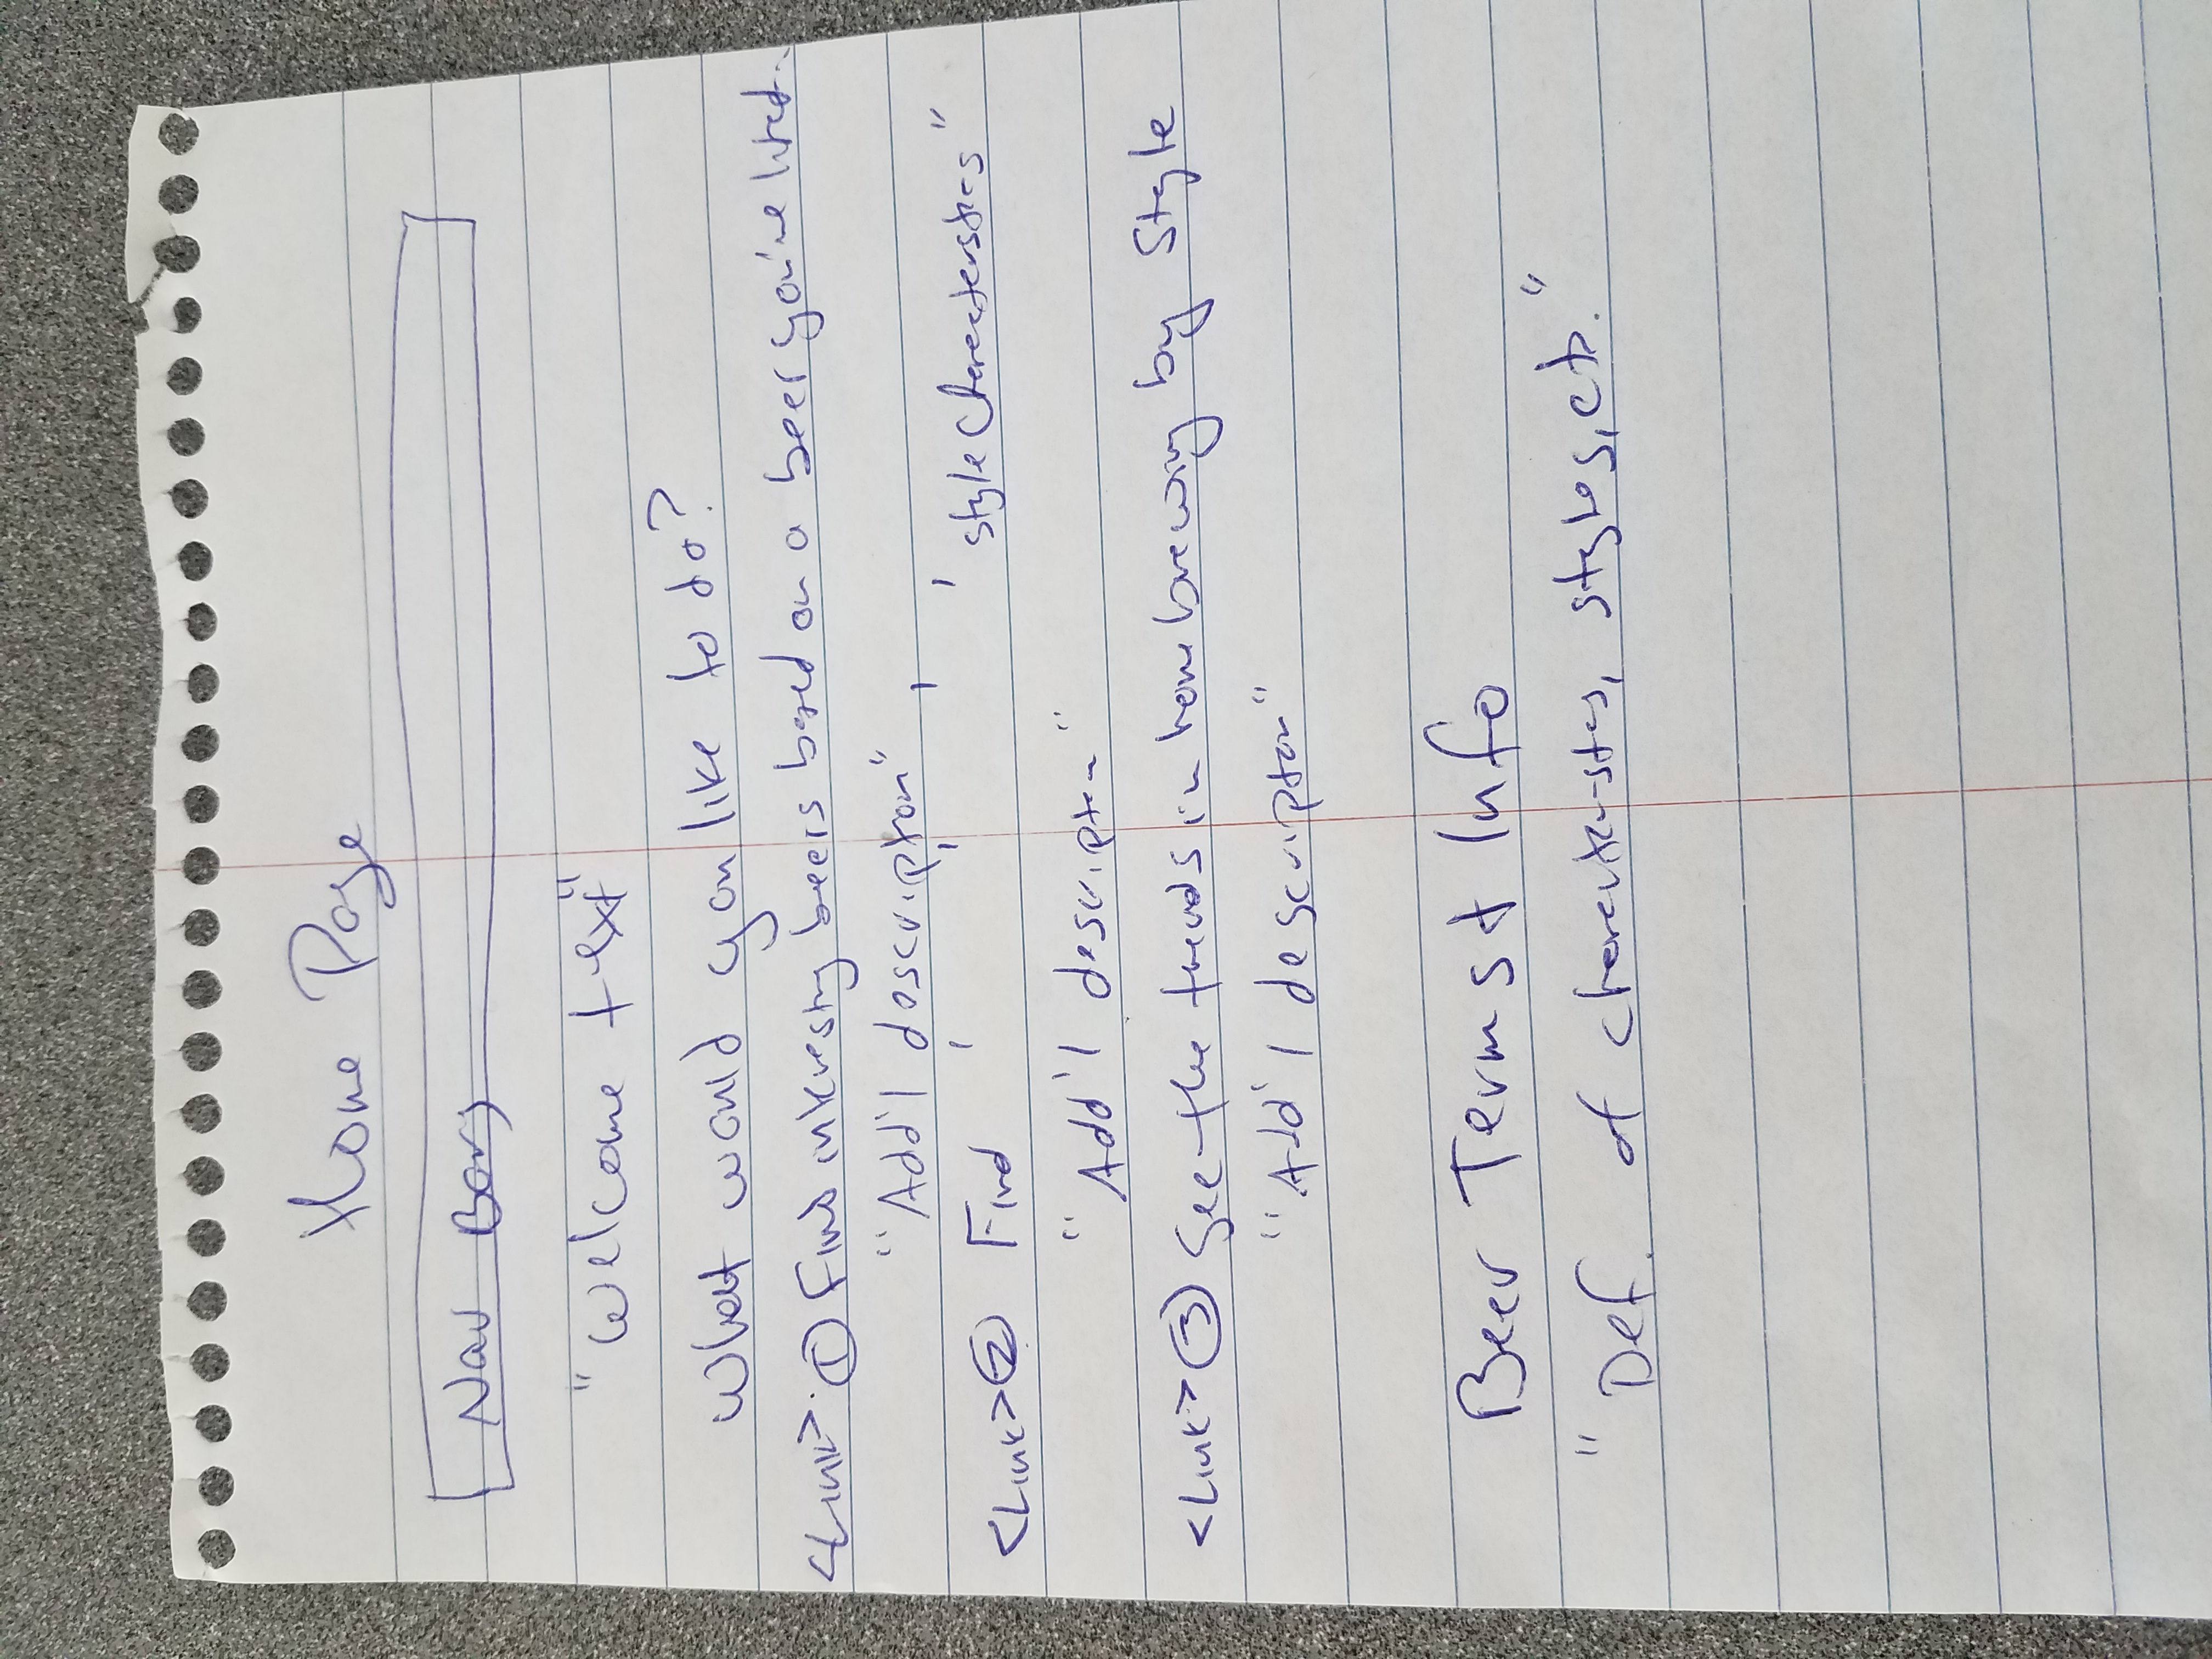 Home Page
Nav Bar
"Welcome text"
What would you like to do?
<Link> ① Find interesting beers based on a beer you've liked.
"Add'l description"
<Link> ② Find ' ' ' ' style characteristics"
"Add'l description"
<Link> ③ See the trends in homebrewing by Style
"Add'l description"
Beer Terms + Info
"Def. of characteristics, styles, etc."